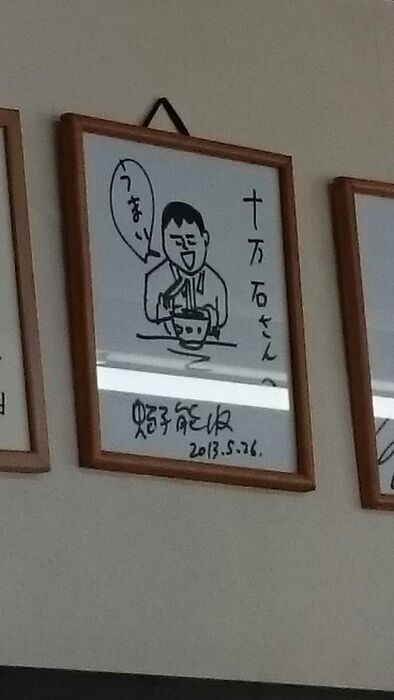 十万石さんへ
うまい
蛭子能収
2013.5.26.